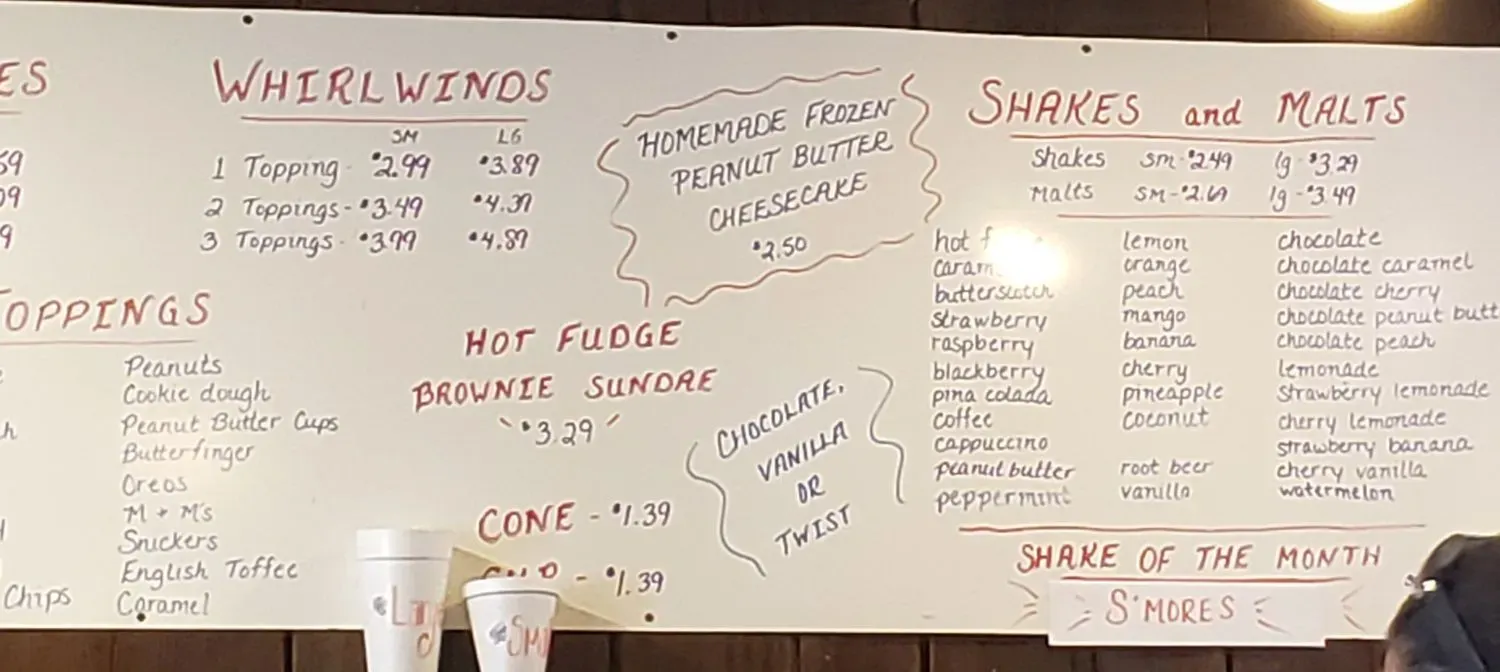 WHIRLWINDS
SM LG
1 Topping - $2.99 $3.89
2 Toppings - $3.49 $4.39
3 Toppings - $3.99 $4.89
TOPPINGS
Peanuts
Cookie dough
Peanut Butter Cups
Butterfinger
Oreos
M + M's
Snickers
English Toffee
Chips Caramel
HOMEMADE FROZEN
PEANUT BUTTER
CHEESECAKE
$2.50
HOT FUDGE
BROWNIE SUNDAE
$3.29
CONE - $1.39
- $1.39
CHOCOLATE,
VANILLA
OR
TWIST
SHAKES and MALTS
Shakes sm-$2.49 lg-$3.29
Malts sm-$2.69 lg-$3.49
hot lemon chocolate
orange chocolate caramel
butterscotch peach chocolate cherry
strawberry mango chocolate peanut butt
raspberry banana chocolate peach
blackberry cherry lemonade
pina colada pineapple strawberry lemonade
coffee coconut cherry lemonade
cappuccino strawberry banana
peanut butter root beer cherry vanilla
peppermint vanilla watermelon
SHAKE OF THE MONTH
S'MORES